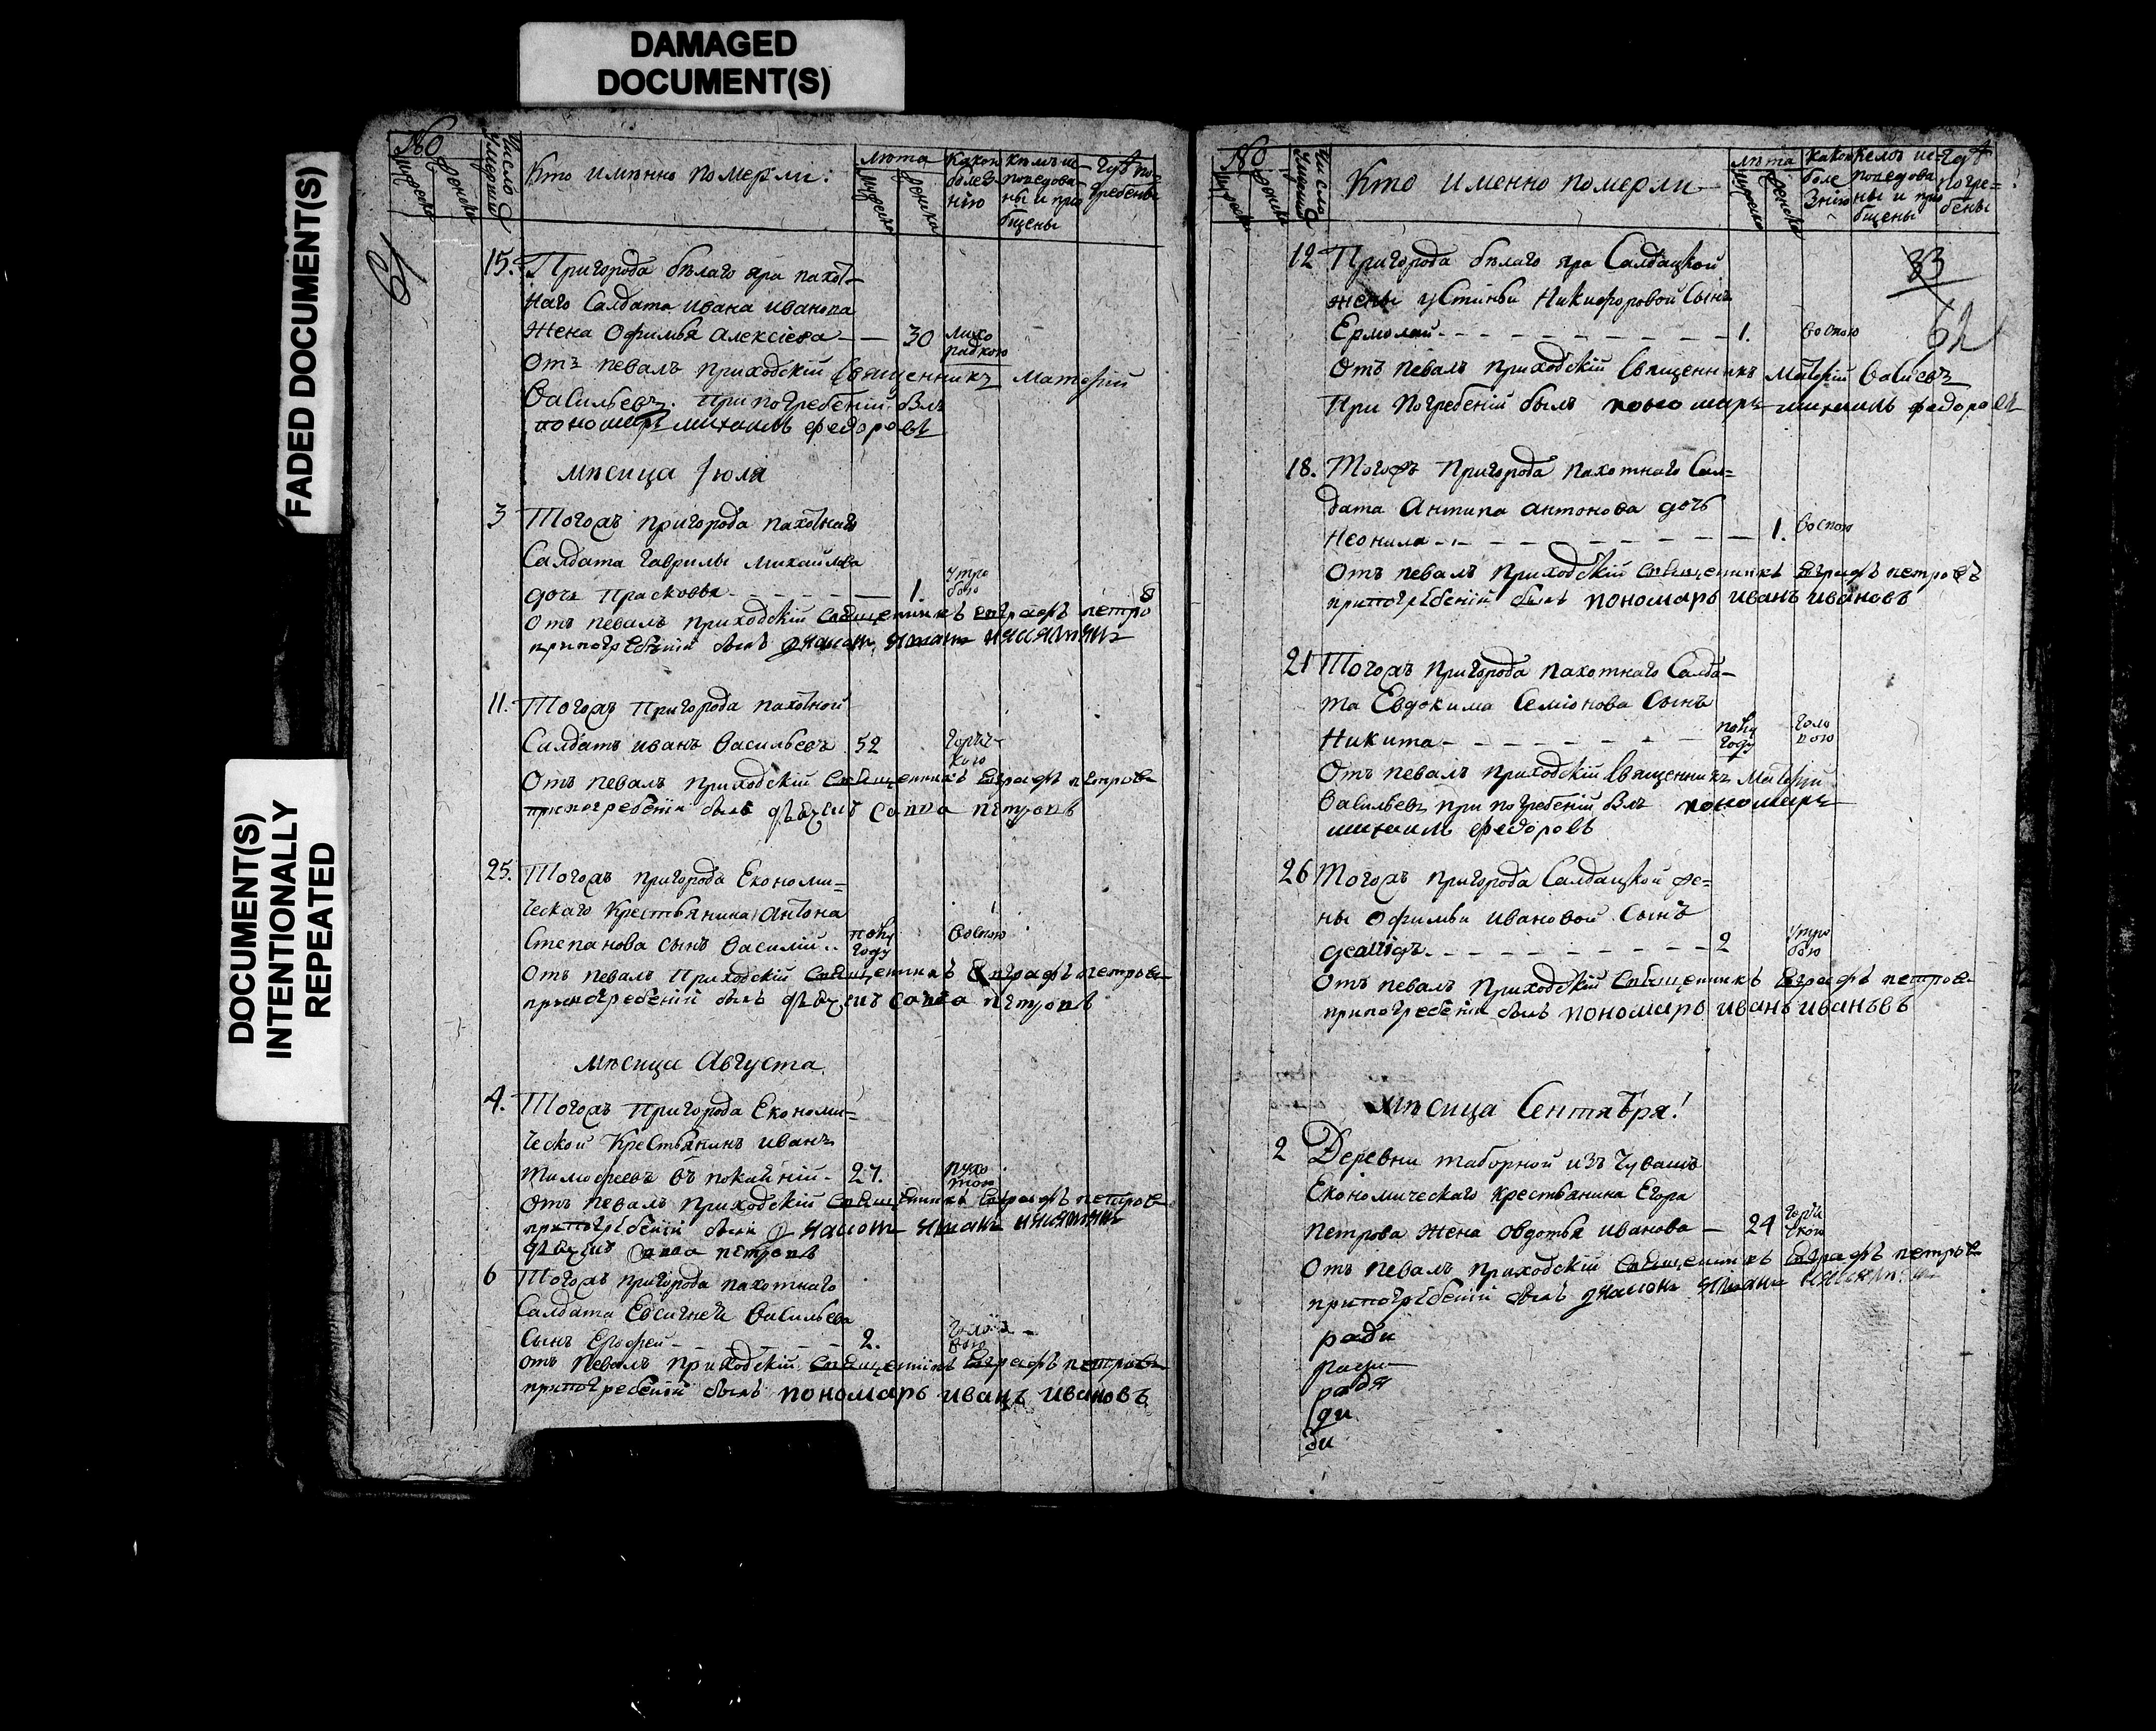 DAMAGED
DOCUMENT(S)
FADED DOCUMENT(S)
DOCUMENT(S)
INTENTIONALLY
REPEATED
№
мужеска
женска
Число умерших
Кто имѣнно померли:
лѣта
мужеска
женска
Какою
болез-
нію
кемъ ис-
поведова-
ны и прио
бщены
Гдѣ по-
гребены
15. Пригорода бѣлаго яра пахот-
наго Салдата ивана иванова
жена Офимья Алексіева — — 30 лихо
радкою
Отъ певалъ приходскій Священникъ Матфій
Васильевъ. При погребеніи былъ
пономарь михаилъ федоровъ
мѣсяца Іюля
3 Тогожъ пригорода пахотнаго
Салдата Гаврилы михайлова
дочь Прасковья — 1. утро
бою
Отъ певалъ приходскій священникъ евграфъ петро
припогребеніи былъ
11. Тогожъ Пригорода пахотной
Салдатъ иванъ Васильевъ 52 горяч-
кою
Отъ певалъ приходскій священникъ евграфъ петровъ
припогребеніи былъ сава петровъ
25. Тогожъ пригорода Економи=
ческаго Крестьянина Антона
Степанова сынъ Василій .. полу
году воспою
Отъ певалъ Приходскій священникъ Евграфъ петровъ
припогребеніи былъ сава петровъ
мѣсяца Августа
4. Тогожъ Пригорода Економи=
ческой Крестьянинъ иванъ
Тимофеевъ 27.
Отъ певалъ приходскій священникъ евграфъ петровъ
припогребеніи были
петровъ
6 Тогожъ пригорода пахотнаго
Салдата Евсигнеи Васильева
сынъ Ерофей — 2.
отъ певалъ приходскій священникъ евграфъ петровъ
припогребеніи былъ пономарь иванъ ивановъ
№
мужеска
женска
Число умерших
Кто именно померли
лѣта
мужеска
женска
какою
боле
знію
Кемъ ис-
поведова
ны и прио
бщены
Гдѣ
погре=
бены
33
62
12 Пригорода бѣлаго яра Салдацкой
жены устиньи Никифоровой Сынъ
Ермолай — 1. воспою
Отъ певалъ приходскій Священникъ Матфій Васиевъ
При погребеніи былъ пономарь михаилъ федоровъ
18. Тогожъ Пригорода пахотнаго Сал=
дата Антипа антонова дочь
Неонила — 1. воспою
Отъ певалъ приходскій священникъ евграфъ петровъ
припогребеніи былъ пономарь иванъ ивановъ
21 Тогожъ пригорода пахотнаго Салда-
та Евдокима Семіонова Сынъ
Никита — полу
году
Отъ певалъ приходскій Священникъ Матфій
Васильевъ при погребеніи былъ пономарь
михаилъ федоровъ
26 Тогожъ пригорода Салдацкой же=
ны Офимьи ивановой Сынъ
— 2 утро
бою
Отъ певалъ приходскій священникъ евграфъ петровъ
припогребеніи былъ пономарь иванъ иванъвъ
мѣсяца Сентября!
2 Деревни таборной изъ чувашъ
Економическаго крестьянина Егора
петрова жена Овдотья иванова — 24 горя
чкою
Отъ певалъ приходскій священникъ евграфъ петровъ
припогребеніи былъ
ради
ради
ди